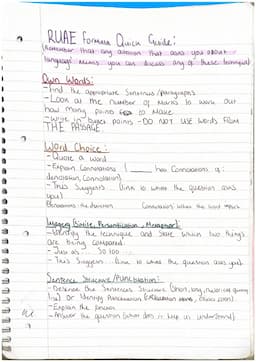 RUAE Formula Quick Guide:
(Remember that any question that asks you about
language means you can discuss any of these techniques)
Own Words:
- Find the appropriate sentences/paragraphs
- Look at the number of marks to work out
how many points to make
- write in bullet points - DO NOT USE WORDS FROM
THE PASSAGE.
Word Choice:
- Quote a word
- Explain Connotations ( ____ has connotations of:
denotation, connotation)
- This suggests... (link to what the question asks
you)
Imagery (Simile, Personification, Metaphor):
- Identify the technique and state which two things
are being compared.
- Just as... So too...
- This suggests... (link to what the question asks you)
Sentence Structure/Punctuation:
- Describe the Sentences Structure (short, long,
list) or identify Punctuation
- Explain the
- Answer the question (what does it help us understand)